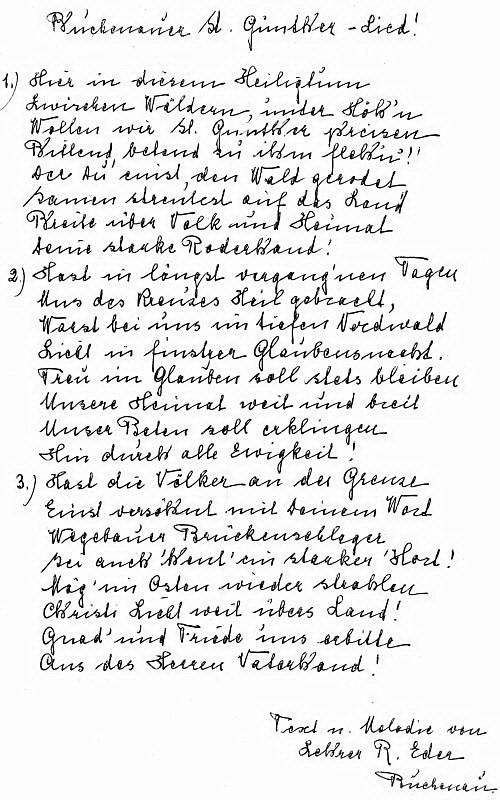 Buchenauer St. Gunther-Lied!
1.) Hier in diesem Heiligtum
Zwischen Wäldern, unter Höh'n
Wollen wir St. Gunther preisen
Bittend, betend zu ihm fleh'n!!
Der Du einst, den Wald gerodet
Samen streutest auf das Land
Breite über Volk und Heimat
Deine starke Roderhand!
2.) Hast in längst vergang'nen Tagen
Uns des Kreuzes Heil gebracht,
Warst bei uns im tiefen Nordwald
Licht in finstrer Glaubensnacht.
Treu im Glauben soll stets bleiben
Unsere Heimat weit und breit
Unser Beten soll erklingen
Hin durch alle Ewigkeit!
3.) Hast die Völker an der Grenze
Einst versöhnt mit Deinem Wort
Wegebauer Brückenschlager
Sei auch 'heut' ein starker 'Hort!
Mög' im Osten wieder strahlen
Christi Licht weit übers Land!
Gnad' und Friede uns erbitte
Aus des Herren Vaterhand!
Text u. Melodie von
Lehrer R. Eder
Buchenau.